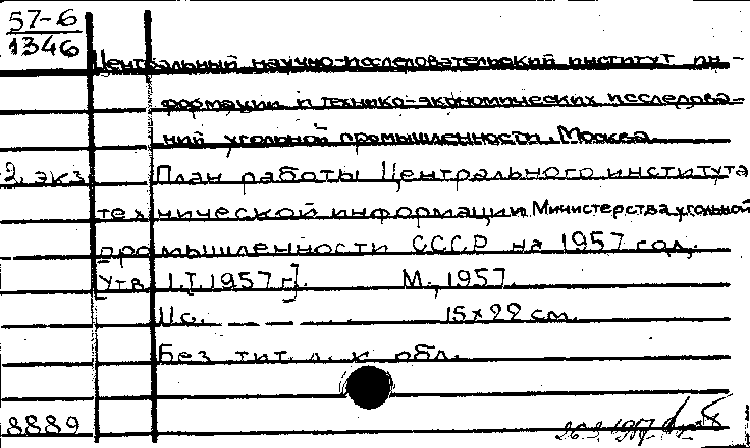 57-6
1346
Центральный научно-исследовательский институт ин-
формации и технико-экономических исследова-
ний угольной промышленности. Москва
2 экз. План работы Центрального института
технической информации Министерства угольной
промышленности СССР на 1957 год.
[Утв. 1.I.1957 г.]. М., 1957.
11 с. 15×22 см.
Без тит. л. и обл.
8889